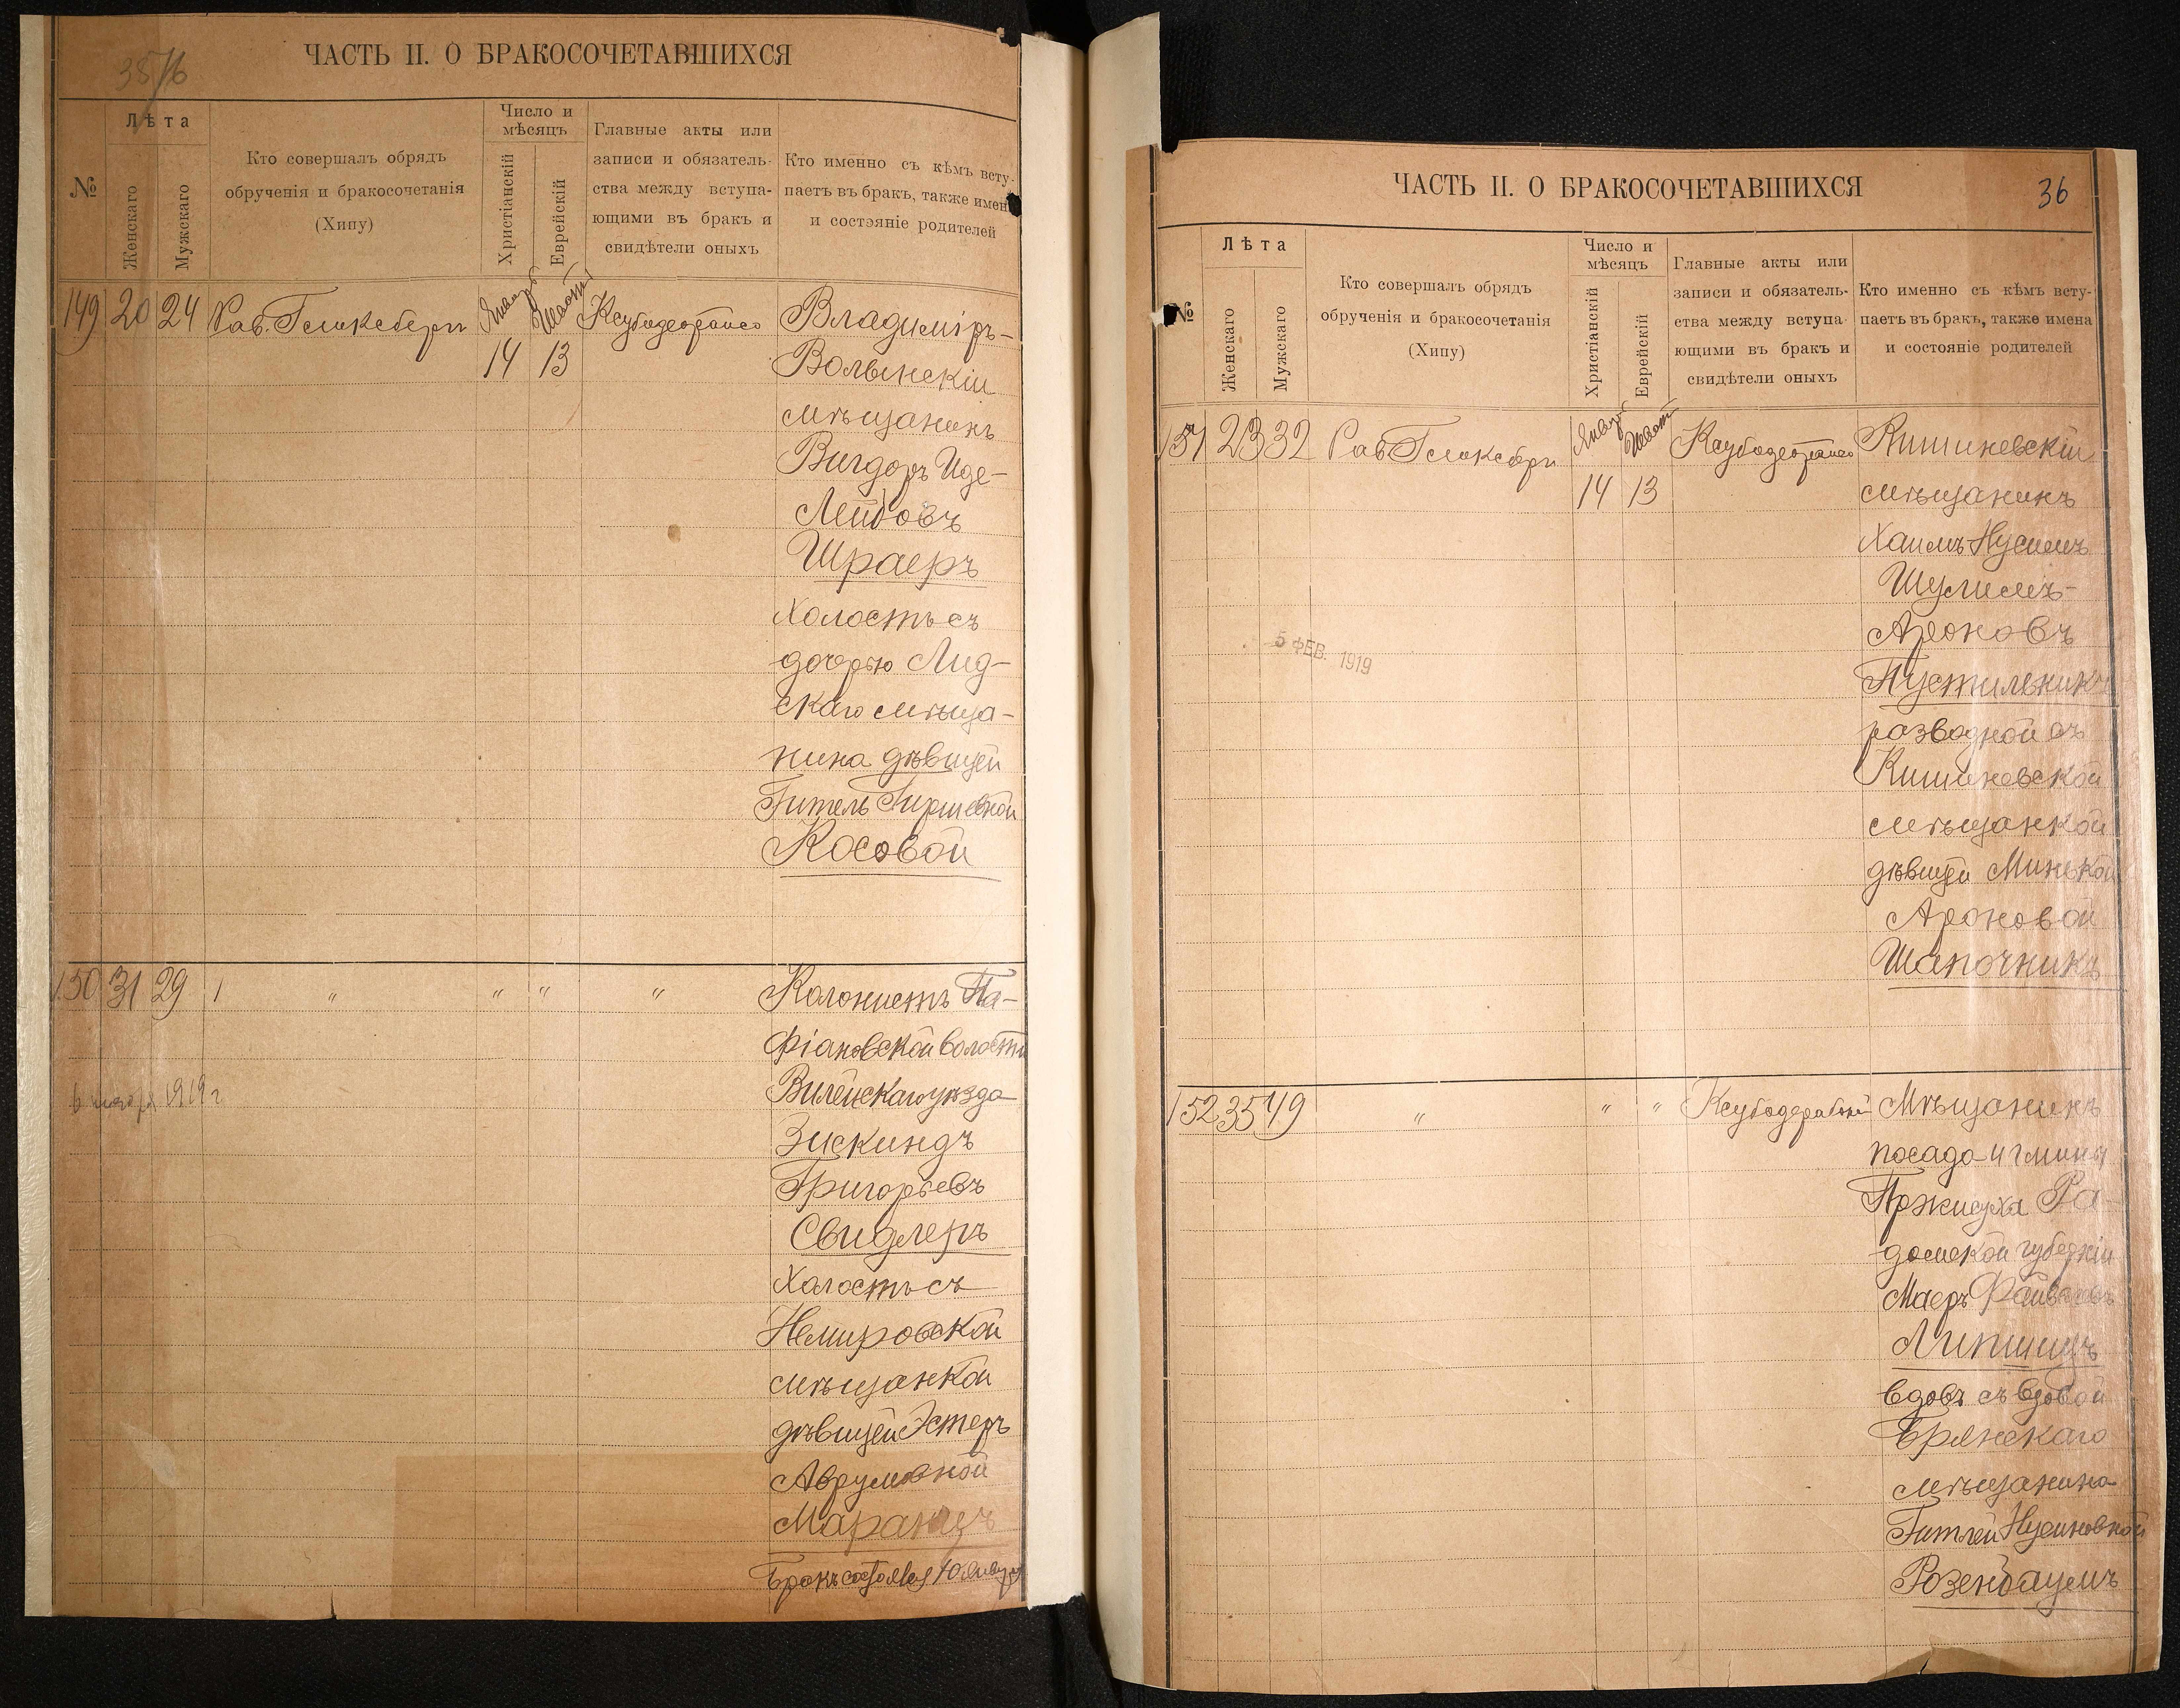 ЧАСТЬ II. О БРАКОСОЧЕТАВШИХСЯ
№
Лѣта
Женскаго
Мужскаго
Кто совершалъ обрядъ
обрученія и бракосочетанія
(Хипу)
Число и
мѣсяцъ
Христіанскій
Еврейскій
Главные акты или
записи и обязатель-
ства между вступа-
ющими въ бракъ и
свидѣтели оныхъ
Кто именно съ кѣмъ всту-
паетъ въ бракъ, также имена
и состэяніе родителей
149 20 24 Рав. Гликсберг Январ Шват Владиміръ-
14 13 Волынскій
мѣщанинъ
Вигдоръ Иде-
Лейбовъ
Шраеръ
холостъ съ
дочерью Лид-
скаго мѣща-
нина дѣвицей
Гитель Гиршевной
Косовой
150 31 29 " " " " Колонистъ Па-
фіановской волости
Вилейскаго уѣзда
Зискиндъ
Григорьевъ
Свидлеръ
Холостъ съ
Немировской
мѣщанкой
дѣвицей Эстеръ
Аврумовной
Маранцъ
Бракъ состоялся 10 Января
1919 г
ЧАСТЬ II. О БРАКОСОЧЕТАВШИХСЯ
36
№
Лѣта
Женскаго
Мужскаго
Кто совершалъ обрядъ
обрученія и бракосочетанія
(Хипу)
Число и
мѣсяцъ
Христіанскій
Еврейскій
Главные акты или
записи и обязатель-
ства между вступа-
ющими въ бракъ и
свидѣтели оныхъ
Кто именно съ кѣмъ всту-
паетъ въ бракъ, также имена
и состояніе родителей
151 23 32 Рав Гликсберг Январ Шват Кишиневскій
14 13 мѣщанинъ
Хаимъ Нусимъ
Шулимъ-
Ароновъ
Пустильникъ
разводной съ
Кишиневской
мѣщанкой
дѣвицей Минькой
Ароновой
Шапочникъ
5 ФЕВ. 1919
152 35 49 " " " Мѣщанинъ
посада и гмины
Пржисуха Ра-
домской губерніи
Маеръ
Липшицъ
вдовъ съ вдовой
Брянскаго
мѣщанина
Гитлей Нусиновной
Розенбаумъ